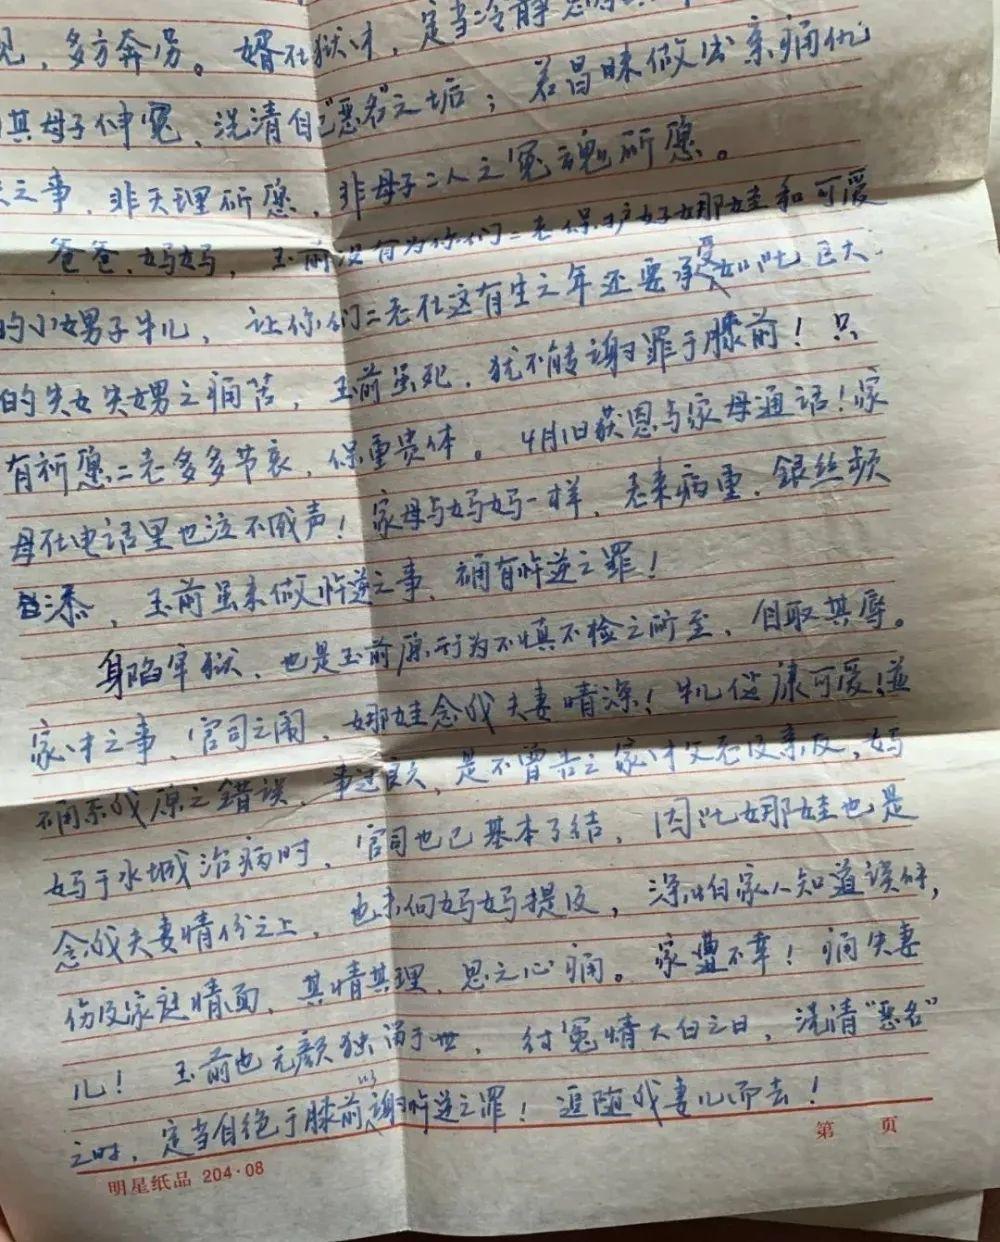 见，多方奔劳。婿在狱中，定当冷静
其母子伸冤，洗清自己"恶名"之垢；若昌昧做出亲痛仇
之事，非天理所愿，非母子二人之冤魂所愿。
爸爸、妈妈，玉前没有为你们二老保护好娜娃和可爱
的小甥子牛儿，让你们二老在这有生之年还要承受如此巨大
的失女失甥之痛苦，玉前虽死，犹不能谢罪于膝前！只
有祈愿二老多多节哀，保重贵体。4月1日获恩与家母通话！家
母在电话里也泣不成声！家母与妈妈一样，老来病重，银丝频
添，玉前虽未做忤逆之事，确有忤逆之罪！
身陷牢狱，也是玉前原行为不慎不检之所至，自取其辱。
家中之事，官司之闹，娜娃念我夫妻情深！牛儿健康可爱！并
确系我原之错误，事过良久，是不曾告之家中父老及亲友，妈
妈于水城治病时，官司也已基本了结，因此娜娃也是
念我夫妻情份之上，也未向妈妈提及，深怕家人知道误解，
伤及家庭情面，其情其理，思之心痛。家遭不幸！痛失妻
儿！玉前也无颜独留于世，待冤情大白之日，洗清"恶名"
之时，定当自绝于膝前以谢忤逆之罪！追随我妻儿而去！
第 页
明星纸品 204·08